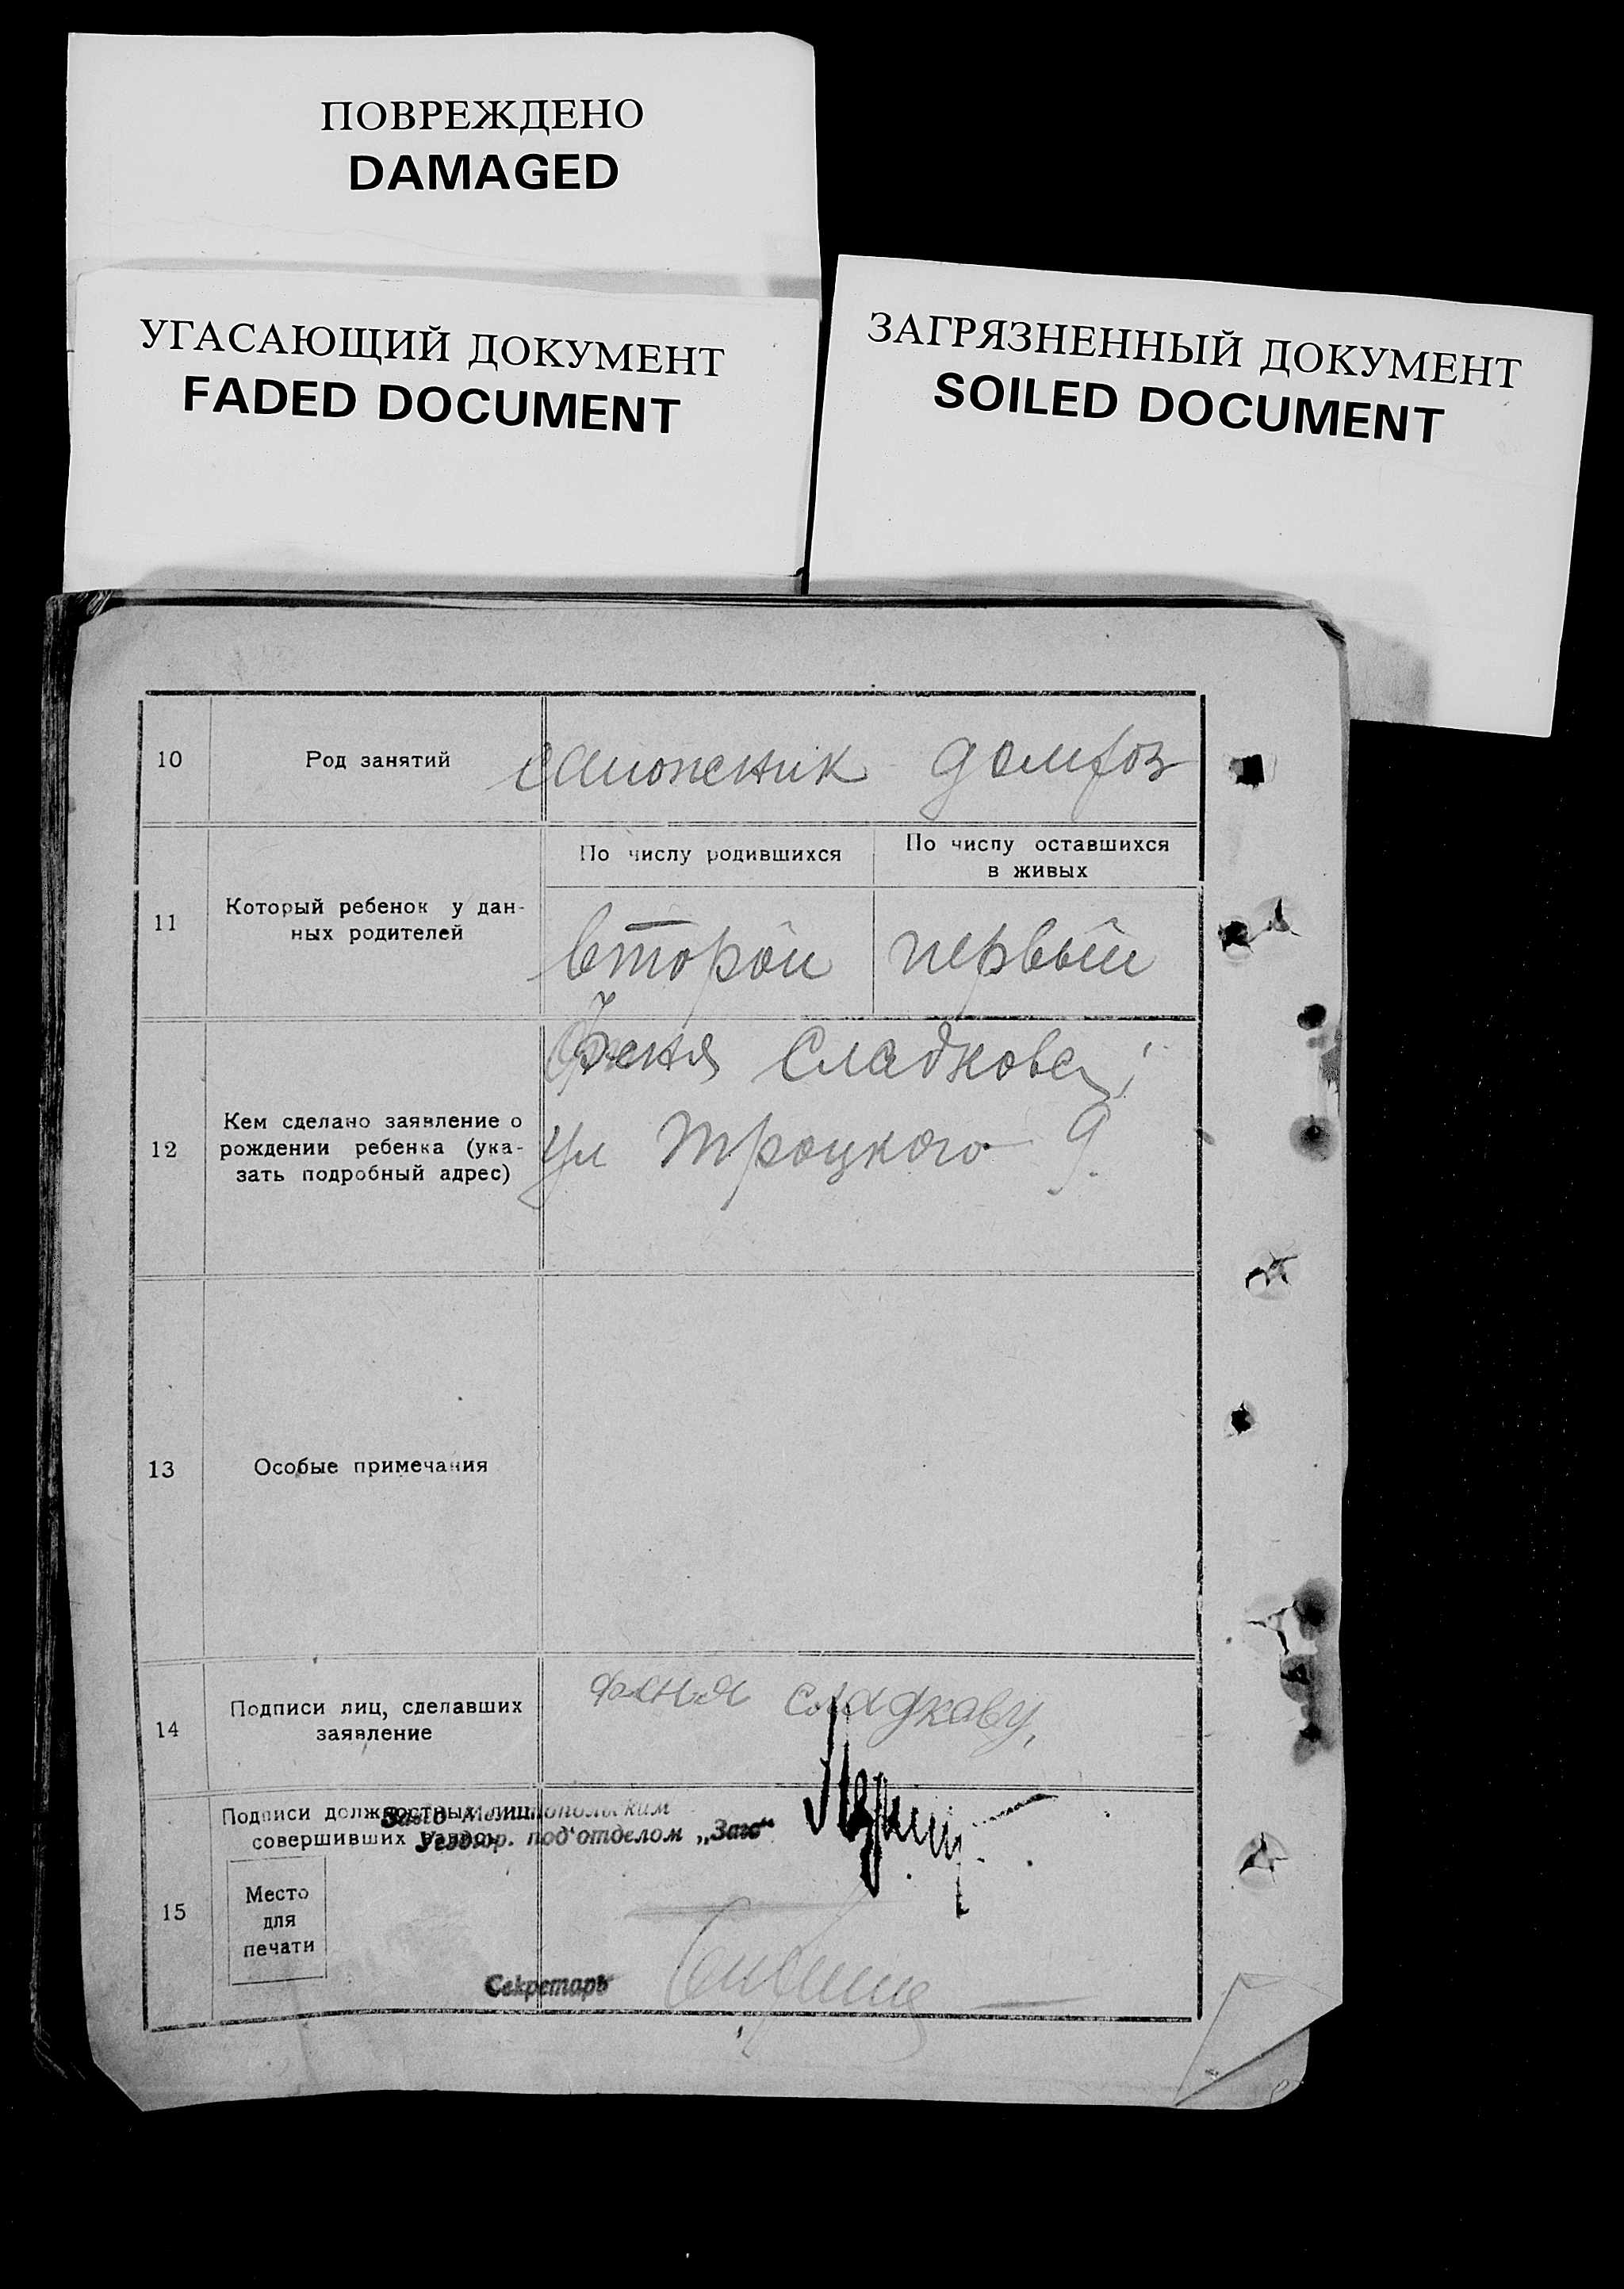 ПОВРЕЖДЕНО
DAMAGED
УГАСАЮЩИЙ ДОКУМЕНТ
FADED DOCUMENT
ЗАГРЯЗНЕННЫЙ ДОКУМЕНТ
SOILED DOCUMENT
10
Род занятий
сапожник
домхоз
11
Который ребенок у дан-
ных родителей
По числу родившихся
второй
По числу оставшихся
в живых
первый
12
Кем сделано заявление о
рождении ребенка (ука-
зать подробный адрес)
Феня Сладкова
ул Троцкого 9.
13
Особые примечания
14
Подписи лиц, сделавших
заявление
феня
15
Подписи должностных лиц
совершивших
под'отделом „Загс“
Место
для
печати
Секретарь